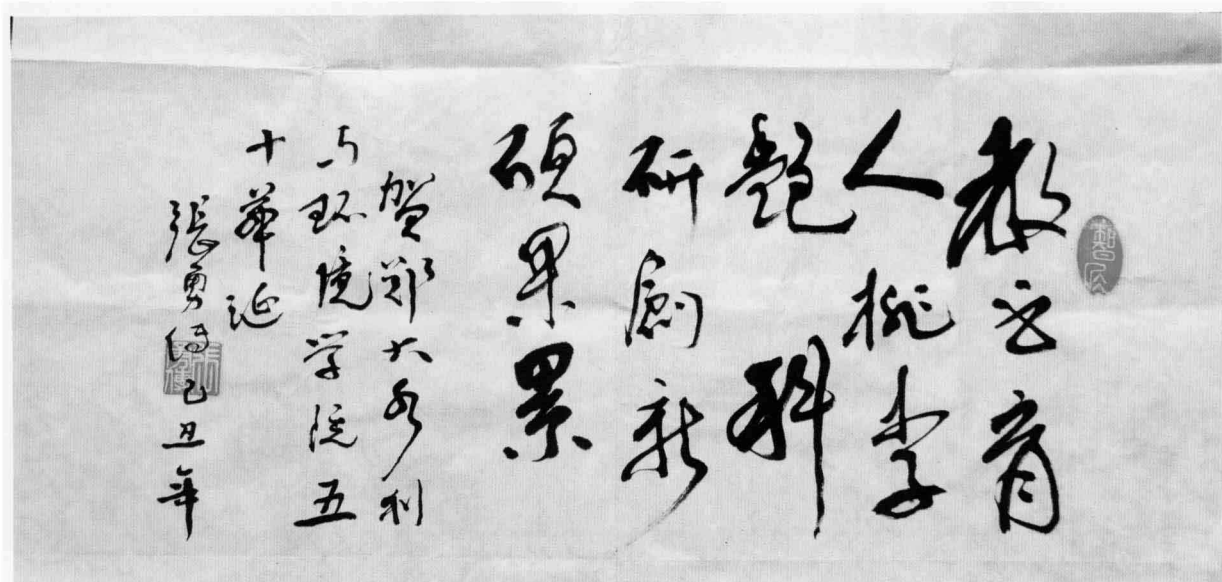 教书育
人桃李
艳科
研创新
硕果累
贺郑大水利
与环境学院五
十华诞
張勇传己丑年